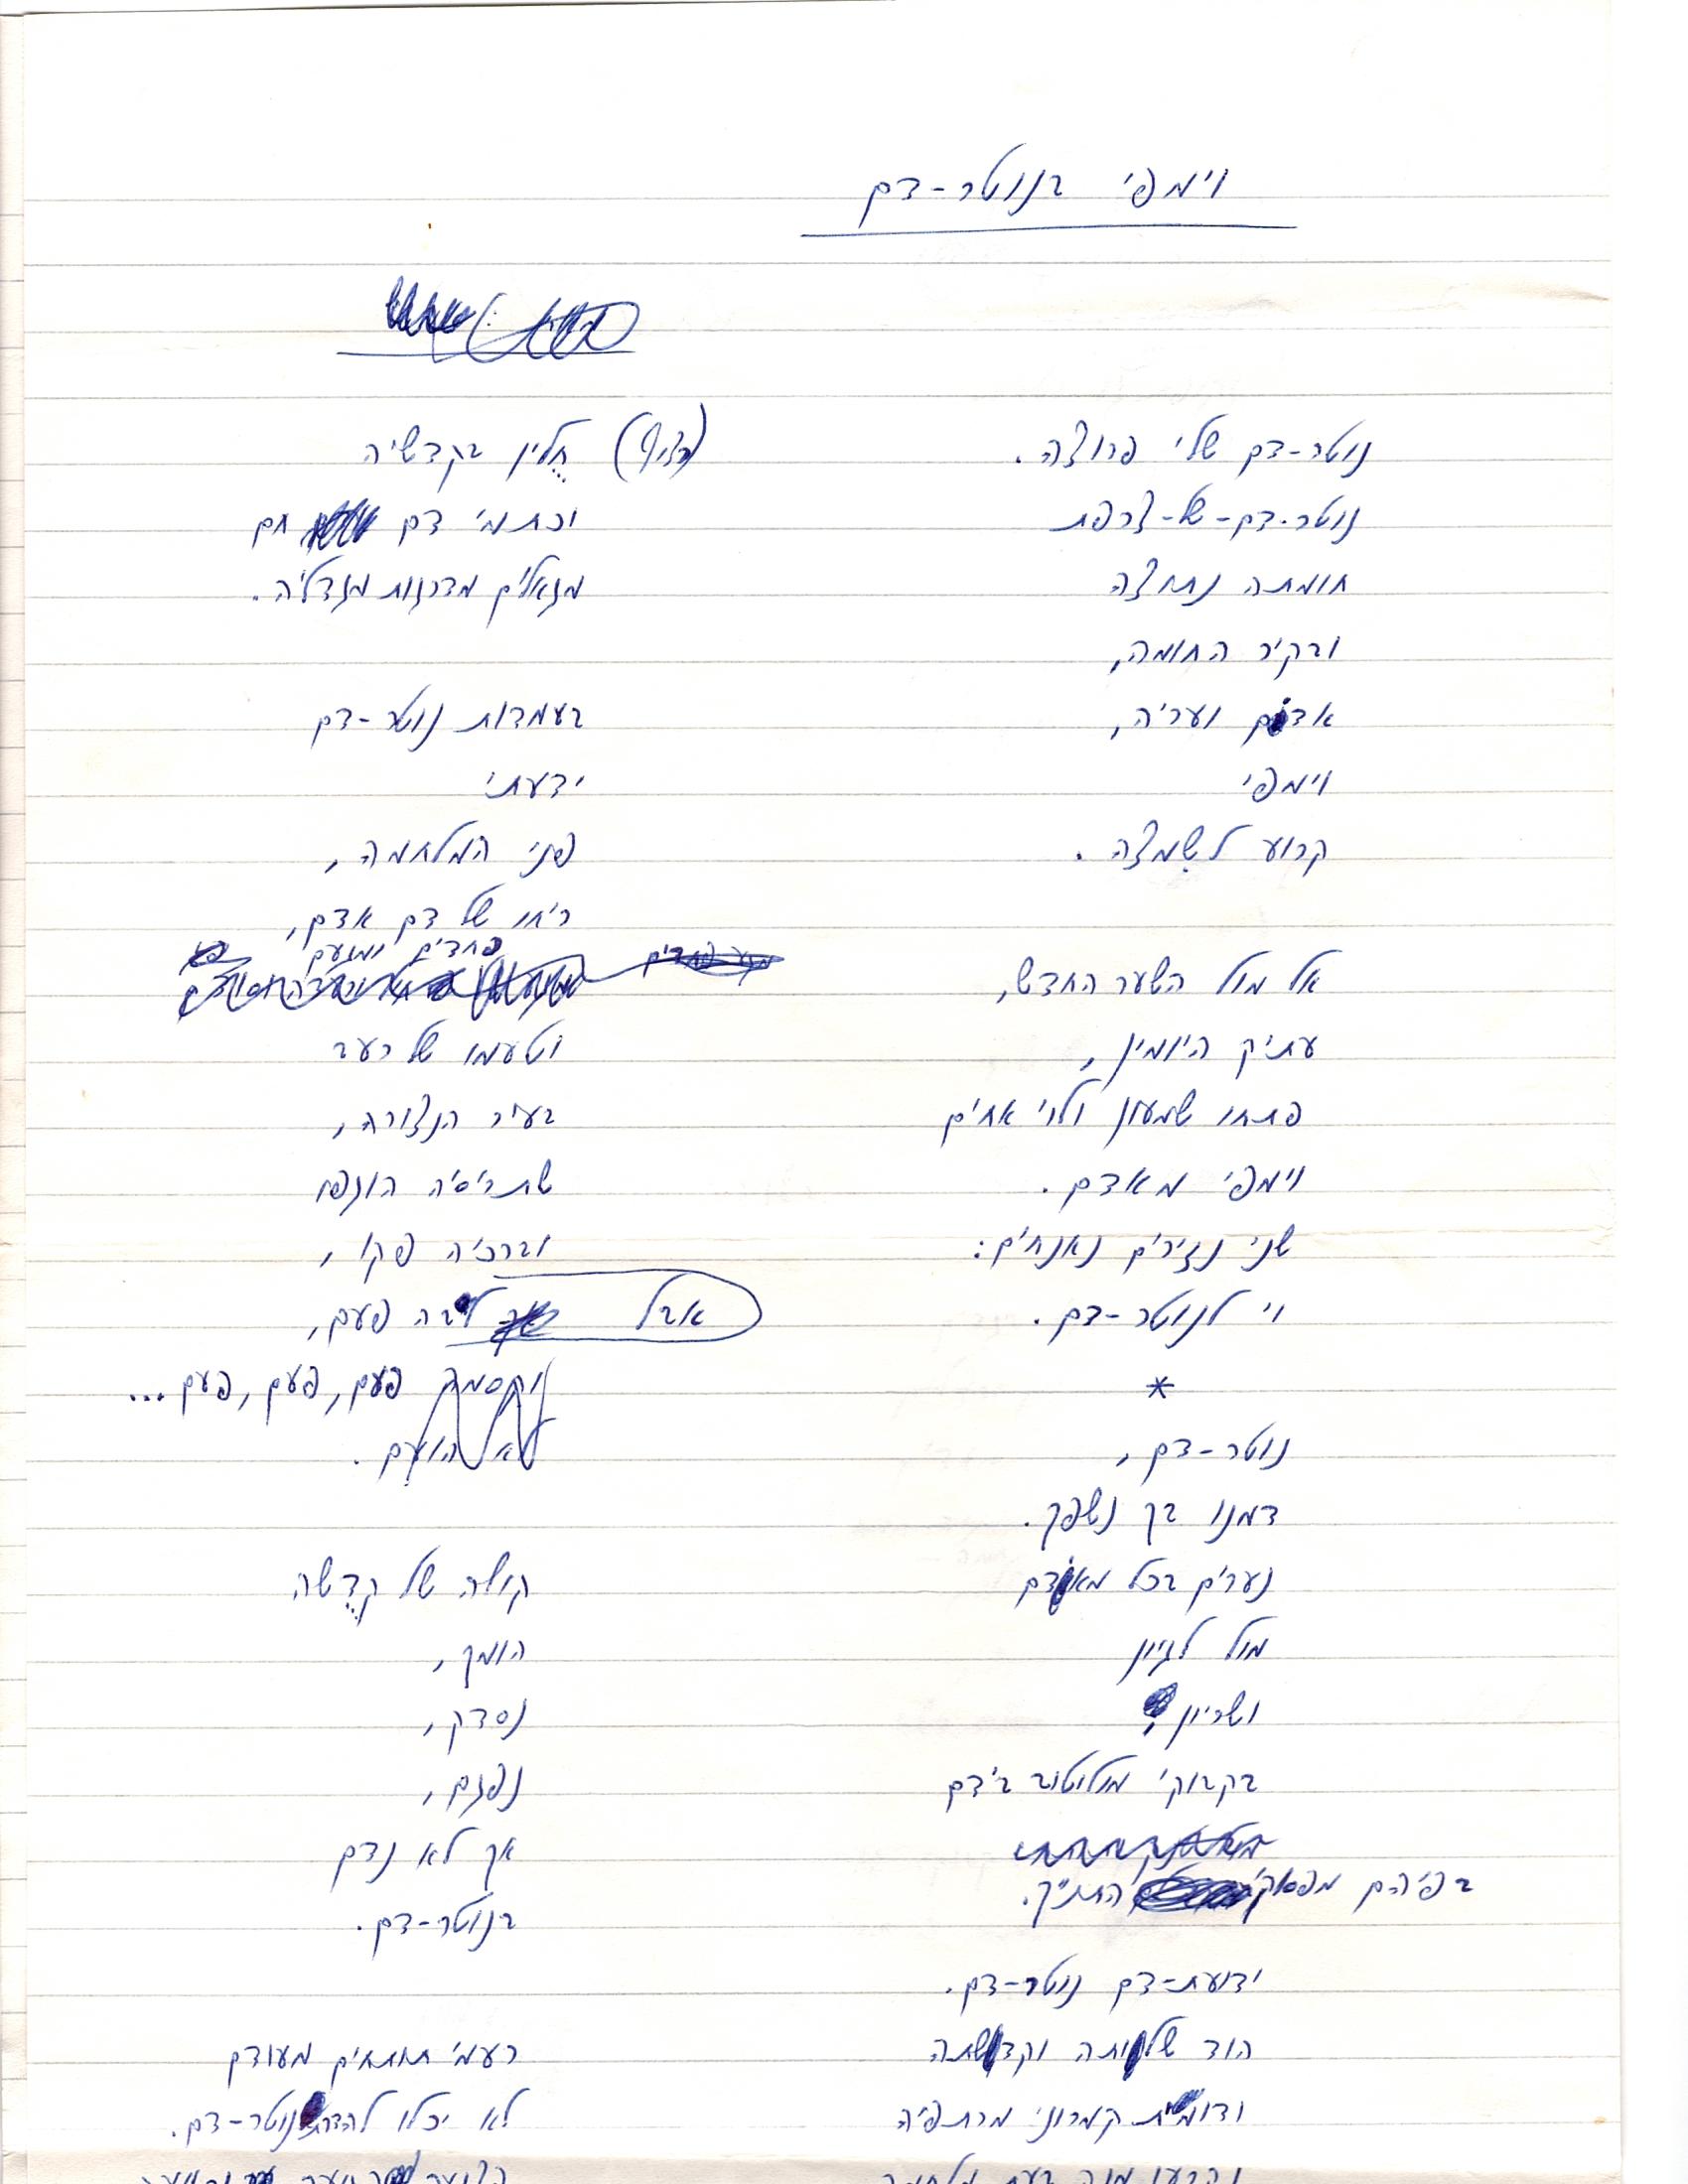 וימפי בנוטר-דם
נוטר-דם שלי פרוצה.
נוטר-דם-של-צרפת
חומתה נתוצה
ובקיר החומה,
אדם ועריה,
וימפי
קרוע לשמצה.
אל מול השער החדש,
עתיק היומין,
פתחו שמעון ולוי אחים
וימפי מאדם.
שני נזירים נאנחים:
וי לנוטר-דם.
*
נוטר-דם,
דמנו בך נשפך.
נערים בכל מאדם
מול לגיון
ושריון,
בקבוקי מולוטוב בידם
בפיהם מפסוקי התנ"ך.
ידועת-דם נוטר-דם.
הוד שלותה וקדשתה
ודומית קמרוני מרתפיה
חלין בקדשיה
וכתמי דם חם
מגאלים מדרגות מגדליה.
בעמדות נוטר-דם
ידעתי
פני המלחמה,
ריחו של דם אדם,
פחדים ומגעם
וטעמו של רעב
בעיר הנצורה,
שתריסיה הוגפו
וברכיה פקו,
אבל לבה פעם,
פעם, פעם, פעם...
לא הועם.
קולה של קדשה
הומך,
נסדק,
נפגם,
אך לא נדם
בנוטר-דם.
רעמי תותחים מעודם
לא יכלו להדרת נוטר-דם.